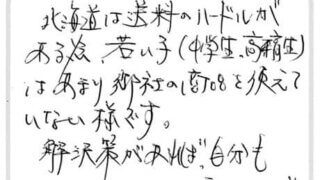 北海道は送料のハードルが
ある為、若い子(中学生、高校生)
はあまり御社の商品を使えて
いない様です。
解決策があれば、自分も